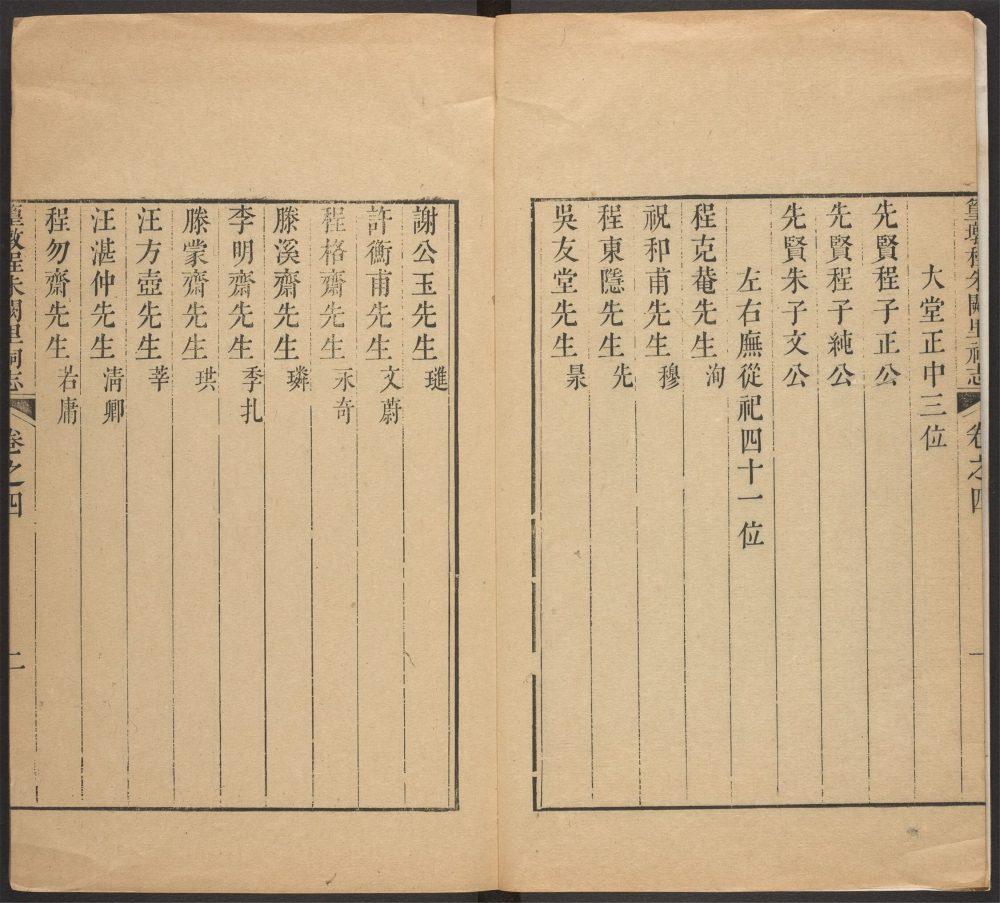 篁墩程朱闕里祠志 卷之四 一
大堂正中三位
先賢程子正公
先賢程子純公
先賢朱子文公
左右廡從祀四十一位
程克菴先生洵
祝和甫先生穆
程東隱先生先
吳友堂先生昊
謝公玉先生璡
許衡甫先生文蔚
程格齋先生永奇
滕溪齋先生璘
李明齋先生季札
滕蒙齋先生珙
汪方壺先生莘
汪湛仲先生清卿
程勿齋先生若庸
篁墩程朱闕里祠志 卷之四 二